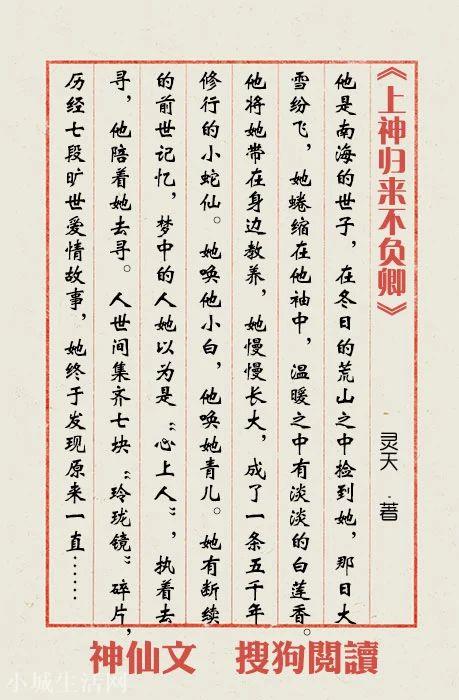 《上神归来不负卿》
灵天 著
他是南海的世子，在冬日的荒山之中捡到她，那日大
雪纷飞，她蜷缩在他袖中，温暖之中有淡淡的白莲香。
他将她带在身边教养，她慢慢长大，成了一条五千年
修行的小蛇仙。她唤他小白，他唤她青儿。她有断续
的前世记忆，梦中的人她以为是“心上人”，执着去
寻，他陪着她去寻。人世间集齐七块“玲珑镜”碎片，
历经七段旷世爱情故事，她终于发现原来一直……
神仙文 搜狗閱讀
小城生活网